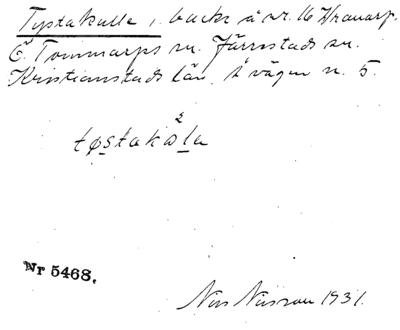 Tystakulle, backe å nr. 16 Vranarp.
Ö. Tommarps sn. Järrestads hd.
Kristianstads län. Å vägen n. 5.
2
tøstakola
Nr 5468.
Nils Nilsson 1931.